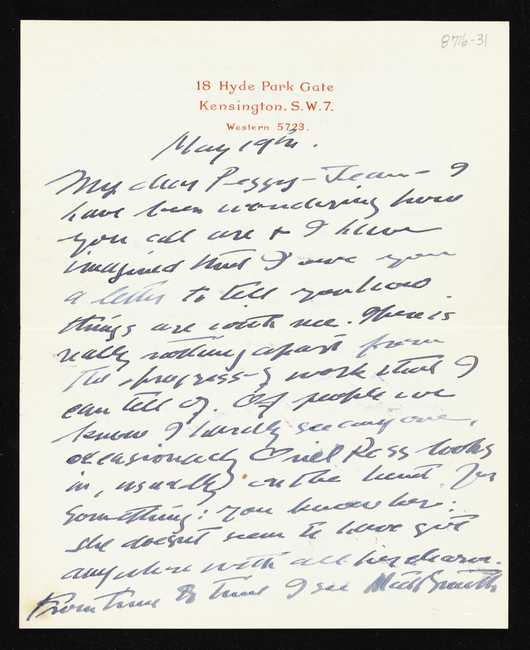 8716-31
18 Hyde Park Gate
Kensington. S.W.7.
Western 5723.
May 19th.
My dear Peggy-Jean - I
have been wondering how
you all are & I have
imagined that I owe you
a letter to tell you how
things are with me. There is
really nothing apart from
the progress of work that I
can tell of. Of people we
know I hardly see anyone,
occasionally Oriel Ross looks
in, usually on the hunt for
something: you know her.
She doesnt seem to have got
anywhere with all her charm.
From time to time I see Matt Smith